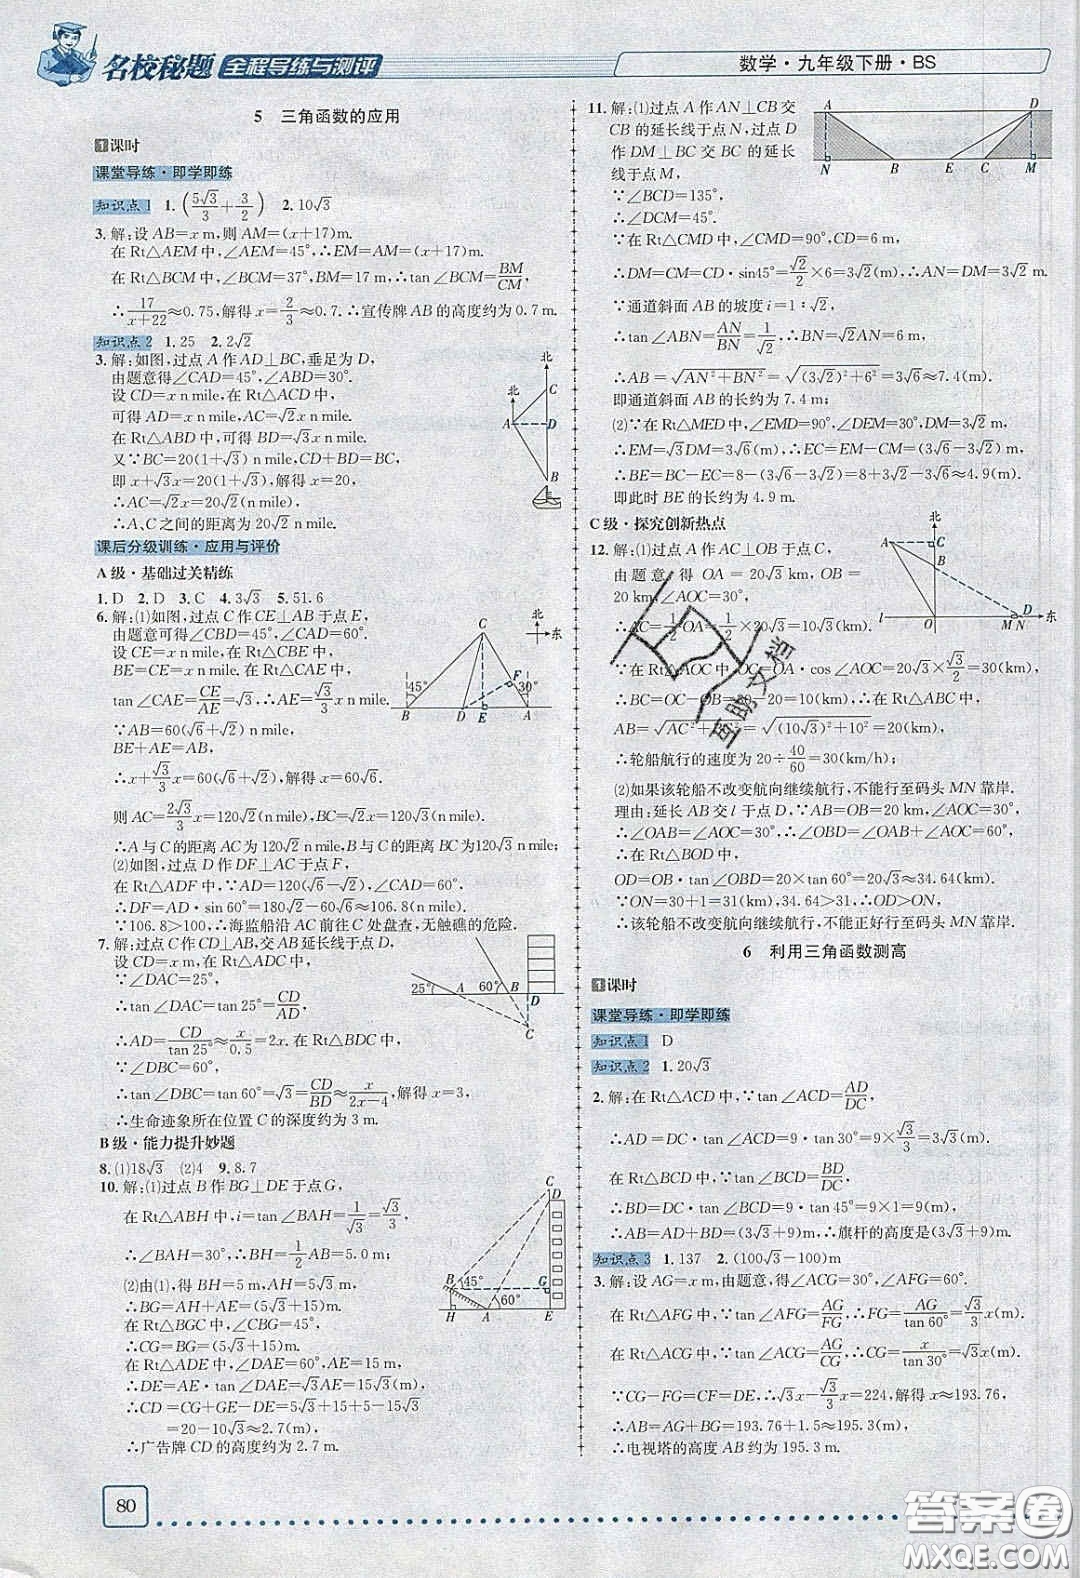 名校秘题 全程导练与测评
数学·九年级下册·BS
5 三角函数的应用
1课时
课堂导练·即学即练
知识点1 1.(5√3/3+3/2) 2.10√3
3.解:设AB=x m,则AM=(x+17)m.
在Rt△AEM中,∠AEM=45°,∴EM=AM=(x+17)m.
在Rt△BCM中,∠BCM=37°,BM=17 m,∴tan∠BCM=BM/CM,
∴17/(x+22)≈0.75,解得x=2/3≈0.7.∴宣传牌AB的高度约为0.7 m.
知识点2 1.25 2.2√2
3.解:如图,过点A作AD⊥BC,垂足为D,
由题意得∠CAD=45°,∠ABD=30°.
设CD=x n mile,在Rt△ACD中,
可得AD=x n mile,AC=√2x n mile,
在Rt△ABD中,可得BD=√3x n mile,
又∵BC=20(1+√3)n mile,CD+BD=BC,
即x+√3x=20(1+√3),解得x=20,
∴AC=√2x=20√2(n mile),
∴A、C之间的距离为20√2 n mile.
北
北
C
A
D
B
课后分级训练·应用与评价
A级·基础过关精练
1.D 2.D 3.C 4.3√3 5.51.6
6.解:(1)如图,过点C作CE⊥AB于点E,
由题意可得∠CBD=45°,∠CAD=60°.
设CE=x n mile,在Rt△CBE中,
BE=CE=x n mile,在Rt△CAE中,
tan∠CAE=CE/AE=√3,∴AE=√3/3 x n mile.
∵AB=60(√6+√2)n mile,
BE+AE=AB,
∴x+√3/3 x=60(√6+√2),解得x=60√6.
则AC=2√3/3 x=120√2(n mile),BC=√2x=120√3(n mile),
∴A与C的距离AC为120√2 n mile,B与C的距离BC为120√3 n mile;
(2)如图,过点D作DF⊥AC于点F,
在Rt△ADF中,∵AD=120(√6-√2),∠CAD=60°,
∴DF=AD·sin60°=180√2-60√6≈106.8.
∵106.8>100,∴海监船沿AC前往C处盘查,无触礁的危险.
北
东
C
F
45°
30°
B
D
E
A
7.解:过点C作CD⊥AB,交AB延长线于点D,
设CD=x m,在Rt△ADC中,
∵∠DAC=25°,
∴tan∠DAC=tan25°=CD/AD,
∴AD=CD/tan25°≈x/0.5=2x.在Rt△BDC中,
∵∠DBC=60°,
∴tan∠DBC=tan60°=CD/BD≈x/(2x-4),解得x=3,
∴生命迹象所在位置C的深度约为3 m.
25°
A
60°
B
D
C
B级·能力提升妙题
8.(1)18√3 (2)4 9.8.7
10.解:(1)过点B作BG⊥DE于点G,
在Rt△ABH中,i=tan∠BAH=1/√3=√3/3,
∴∠BAH=30°,∴BH=1/2 AB=5.0 m;
(2)由(1),得BH=5 m,AH=5√3 m,
∴BG=AH+AE=(5√3+15)m.
在Rt△BGC中,∠CBG=45°,
∴CG=BG=(5√3+15)m.
在Rt△ADE中,∠DAE=60°,AE=15 m,
∴DE=AE·tan∠DAE=15√3(m),
∴CD=CG+GE-DE=5√3+15+5-15√3
=20-10√3≈2.7(m).
∴广告牌CD的高度约为2.7 m.
C
D
B
45°
G
60°
H
A
E
11.解:(1)过点A作AN⊥CB交
CB的延长线于点N,过点D
作DM⊥BC交BC的延长
线于点M,
∵∠BCD=135°,
∴∠DCM=45°.
∵在Rt△CMD中,∠CMD=90°,CD=6 m,
∴DM=CM=CD·sin45°=√2/2×6=3√2(m).∴AN=DM=3√2 m.
∵通道斜面AB的坡度i=1:√2,
∴tan∠ABN=AN/BN=1/√2,∴BN=√2AN=6 m.
∴AB=√(AN²+BN²)=√((3√2)²+6²)=3√6≈7.4(m).
即通道斜面AB的长约为7.4 m;
(2)∵在Rt△MED中,∠EMD=90°,∠DEM=30°,DM=3√2 m,
∴EM=√3DM=3√6(m),∴EC=EM-CM=(3√6-3√2)m,
∴BE=BC-EC=8-(3√6-3√2)=8+3√2-3√6≈4.9(m).
即此时BE的长约为4.9 m.
A
D
N
B
E
C
M
C级·探究创新热点
12.解:(1)过点A作AC⊥OB于点C,
由题意,得OA=20√3 km,OB=
20 km,∠AOC=30°,
∴AC=1/2 OA=1/2×20√3=10√3(km).
∵在Rt△AOC中,OC=OA·cos∠AOC=20√3×√3/2=30(km),
∴BC=OC-OB=30-20=10(km),∴在Rt△ABC中,
AB=√(AC²+BC²)=√((10√3)²+10²)=20(km).
∴轮船航行的速度为20÷40/60=30(km/h);
(2)如果该轮船不改变航向继续航行,不能行至码头MN靠岸.
理由:延长AB交l于点D,∵AB=OB=20 km,∠AOC=30°,
∴∠OAB=∠AOC=30°,∴∠OBD=∠OAB+∠AOC=60°,
∴在Rt△BOD中,
OD=OB·tan∠OBD=20×tan60°=20√3≈34.64(km),
∵ON=30+1=31(km),34.64>31,∴OD>ON,
∴该轮船不改变航向继续航行,不能正好行至码头MN靠岸.
北
A
C
B
l
O
M
N
D
东
6 利用三角函数测高
1课时
课堂导练·即学即练
知识点1 D
知识点2 1.20√3
2.解:在Rt△ACD中,∵tan∠ACD=AD/DC,
∴AD=DC·tan∠ACD=9·tan30°=9×√3/3=3√3(m).
在Rt△BCD中,∵tan∠BCD=BD/DC,
∴BD=DC·tan∠BCD=9·tan45°=9×1=9(m),
∴AB=AD+BD=(3√3+9)m,∴旗杆的高度是(3√3+9)m.
知识点3 1.137 2.(100√3-100)m
3.解:设AG=x m,由题意,得∠ACG=30°,∠AFG=60°.
在Rt△AFG中,∵tan∠AFG=AG/FG,∴FG=AG/tan60°=√3/3 x(m).
在Rt△ACG中,∵tan∠ACG=AG/CG,∴CG=x/tan30°=√3x(m),
∵CG-FG=CF=DE,∴√3x-√3/3 x=224,解得x≈193.76,
∴AB=AG+BG=193.76+1.5≈195.3(m).
∴电视塔的高度AB约为195.3 m.
互助文档
80
答案圈
MXQE.COM